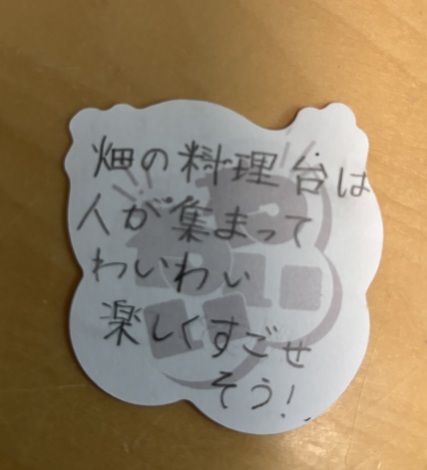 畑の料理台は
人が集まって
わいわい
楽しくすごせ
そう!